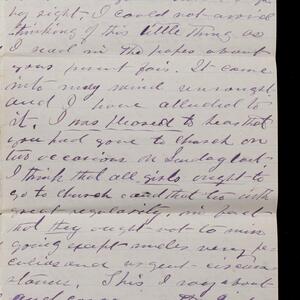 by sight. I could not avoid
thinking of this little thing as
I read in the papers about
your print fair. It came
into my mind unsought
and I have alluded to
it. I was pleased to hear that
you had gone to church on
two occasions on Sunday last.
I think that all girls ought to
go to church and that too with
great regularity, in fact
that they ought not to miss
going except under very pe-
culiar and urgent circum-
stances. This I say about